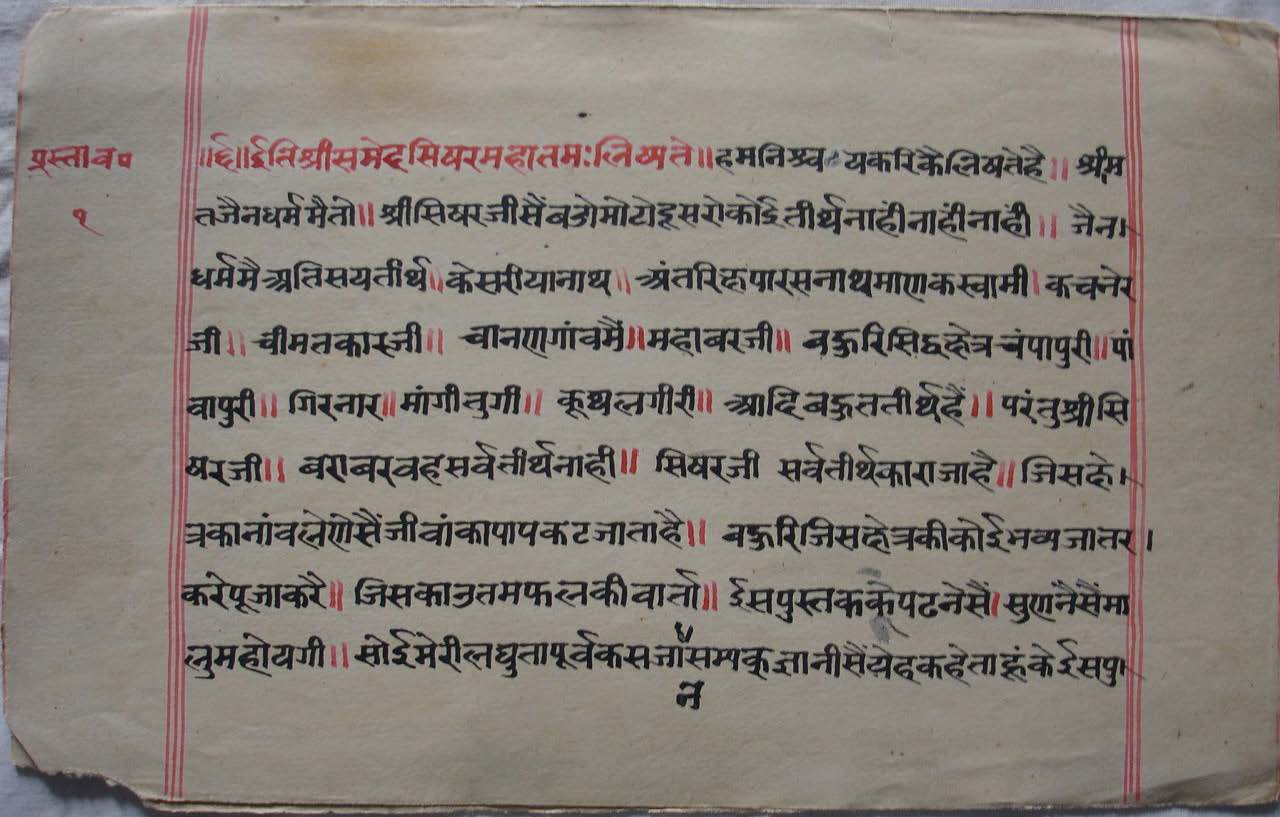 प्रस्ताव॰
१
॥र्द॥ ईति श्री समेद सिषर महातमः लिष्यते॥ हम निश्च यकरिकै लिषते है॥ श्रीम
त जैन धर्म मै तो॥ श्री सिषरजी सें बडो मोटो दूसरो कोई तीर्थ नांहीं नांहीं नांहीं॥ जैन
धर्म मै अतिसय तीर्थ॥ केसरीयानाथ॥ अंतरिक्ष पारसनाथ माणकस्वामी। कचनेर
जी॥ चीमतकारजी॥ चानणगांव मैं॥ महावरजी॥ बहुरि सिद्ध क्षेत्र चंपापुरी॥ पां
वापुरी॥ गिरनार॥ मांगीतुगी॥ कूथलगीरी॥ आदि बहुत तीर्थ हैं॥ परंतु श्री सि
षरजी॥ बराबर वह सर्व तीर्थ नाही॥ सिषरजी सर्व तीर्थ का राजा है॥ जिस क्षे
त्र का नांव लेणे सैं जीवां का पाप कट जाता है॥ बहुरि जिस क्षेत्र की कोई भव्य जातर
करे पूजा करै॥ जिस का उतम फल की वार्ता॥ ईस पुस्तक के पटने सैं। सुणनैं सैं मा
लुम होयगी॥ सो ई मेरी लघुता पूर्वक सजौं सम्यक् ज्ञानी सैं येह कहेता हूं के ईस पु
न